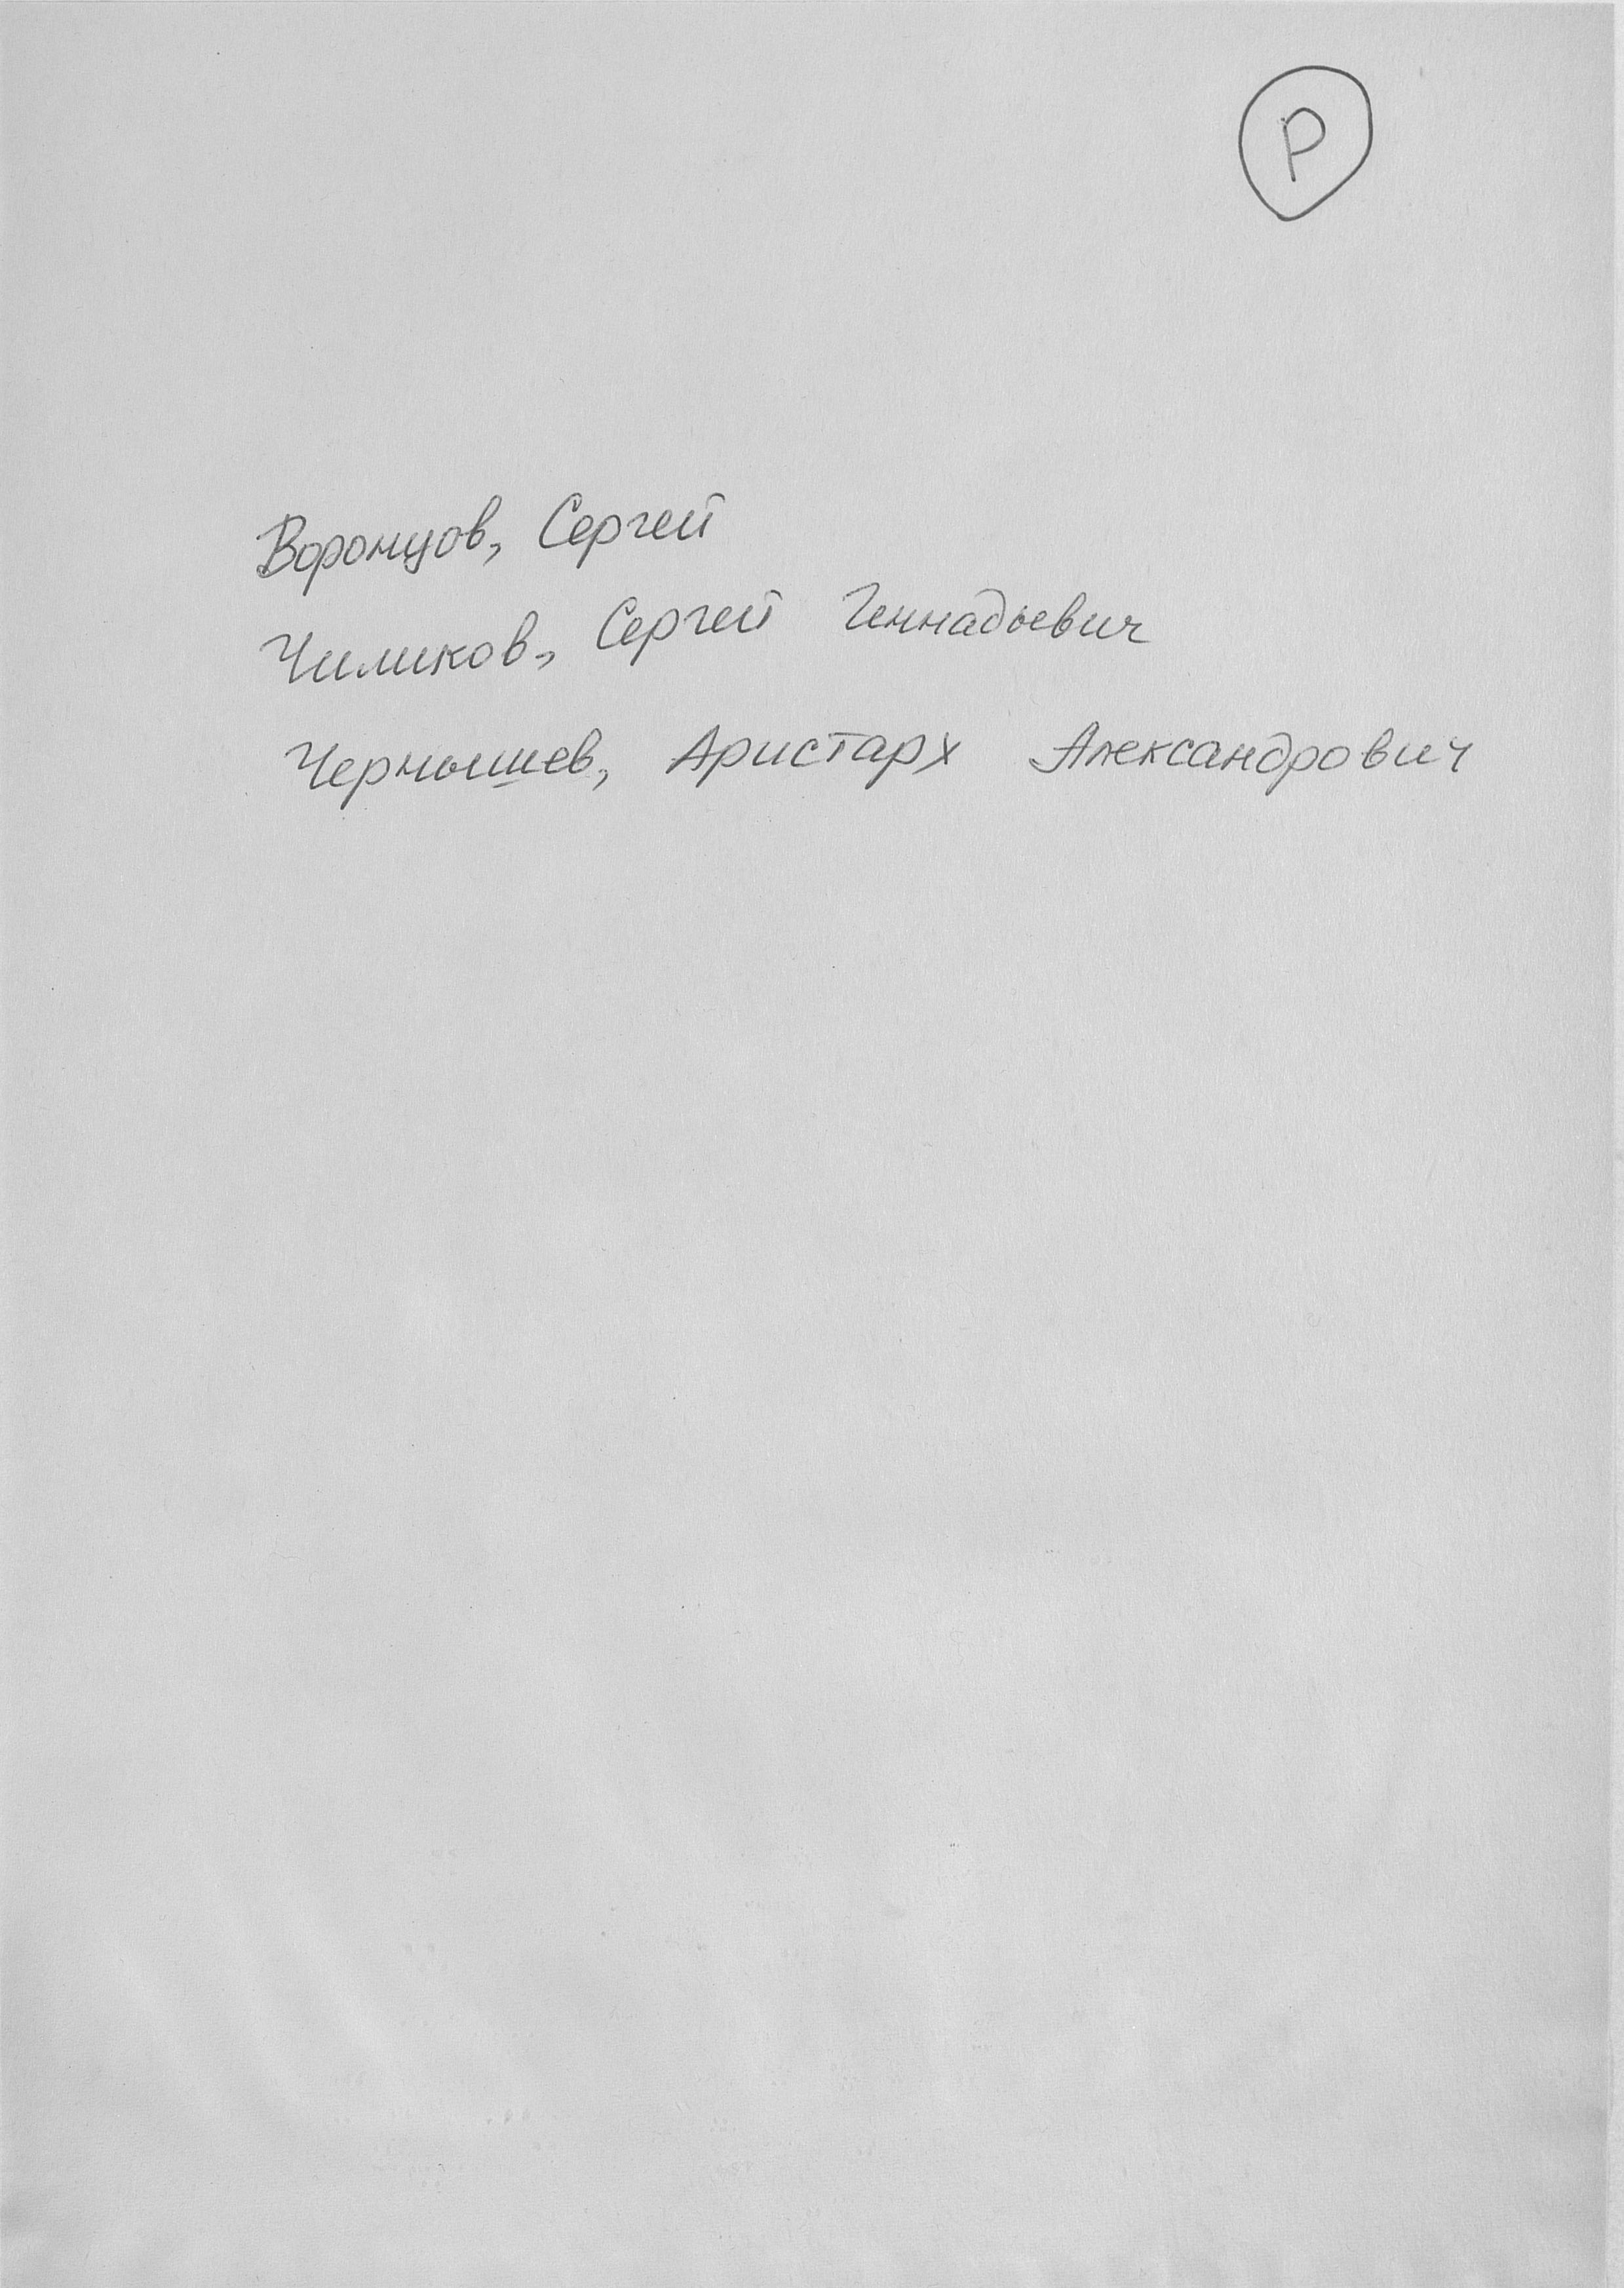 Р
Воронцов, Сергей
Чиликов, Сергей Геннадьевич
Чернышев, Аристарх Александрович